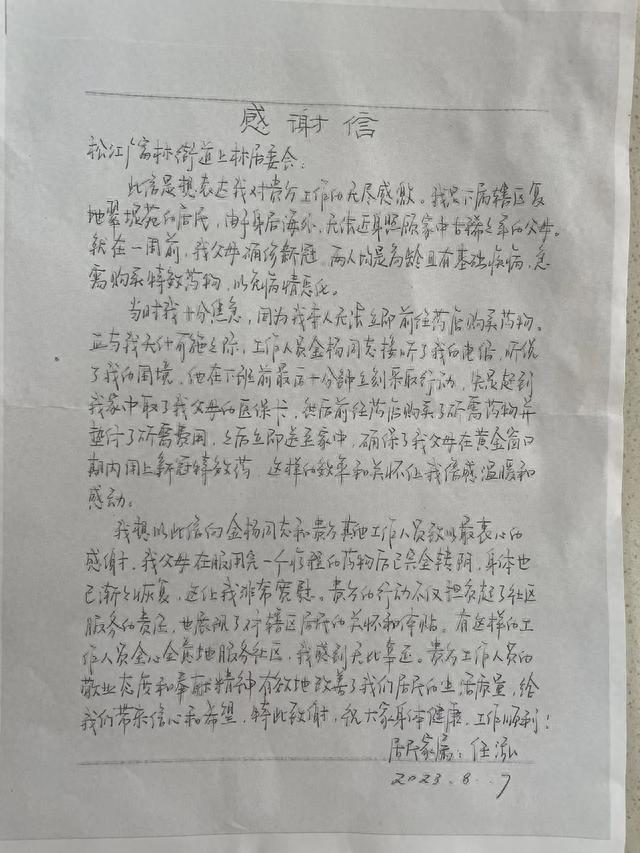 感谢信
松江广富林街道上林居委会：
此信是想表达我对贵方工作的无尽感激。我是下属辖区复
地翠堤苑的居民，由于身居海外，无法近身照顾家中古稀之年的父母。
就在一周前，我父母确诊新冠，两人均是高龄且有基础疾病，急
需购买特效药物，以免病情恶化。
当时我十分焦急，因为我本人无法立即前往药店购买药物。
正与我无计可施之际，工作人员金杨同志接听了我的电话，听说
了我的困境，他在下班前最后十分钟立刻采取行动，先是赶到
我家中取了我父母的医保卡，然后前往药店购买了所需药物并
垫付了所需费用，之后立即送至家中，确保了我父母在黄金窗口
期内用上新冠特效药，这样的效率和关怀让我倍感温暖和
感动。
我想以此信向金杨同志和贵方其他工作人员致以最衷心的
感谢，我父母在服用完一个疗程的药物后已完全转阴，身体也
已渐渐恢复，这让我非常宽慰。贵方的行动不仅担负起了社区
服务的责任，也展现了对辖区居民的关怀和体贴。有这样的工
作人员全心全意地服务社区，我感到无比幸运。贵方工作人员的
敬业态度和奉献精神有效地改善了我们居民的生活质量，给
我们带来信心和希望，特此致谢，祝大家身体健康，工作顺利！
居民家属：任泓
2023.8.7